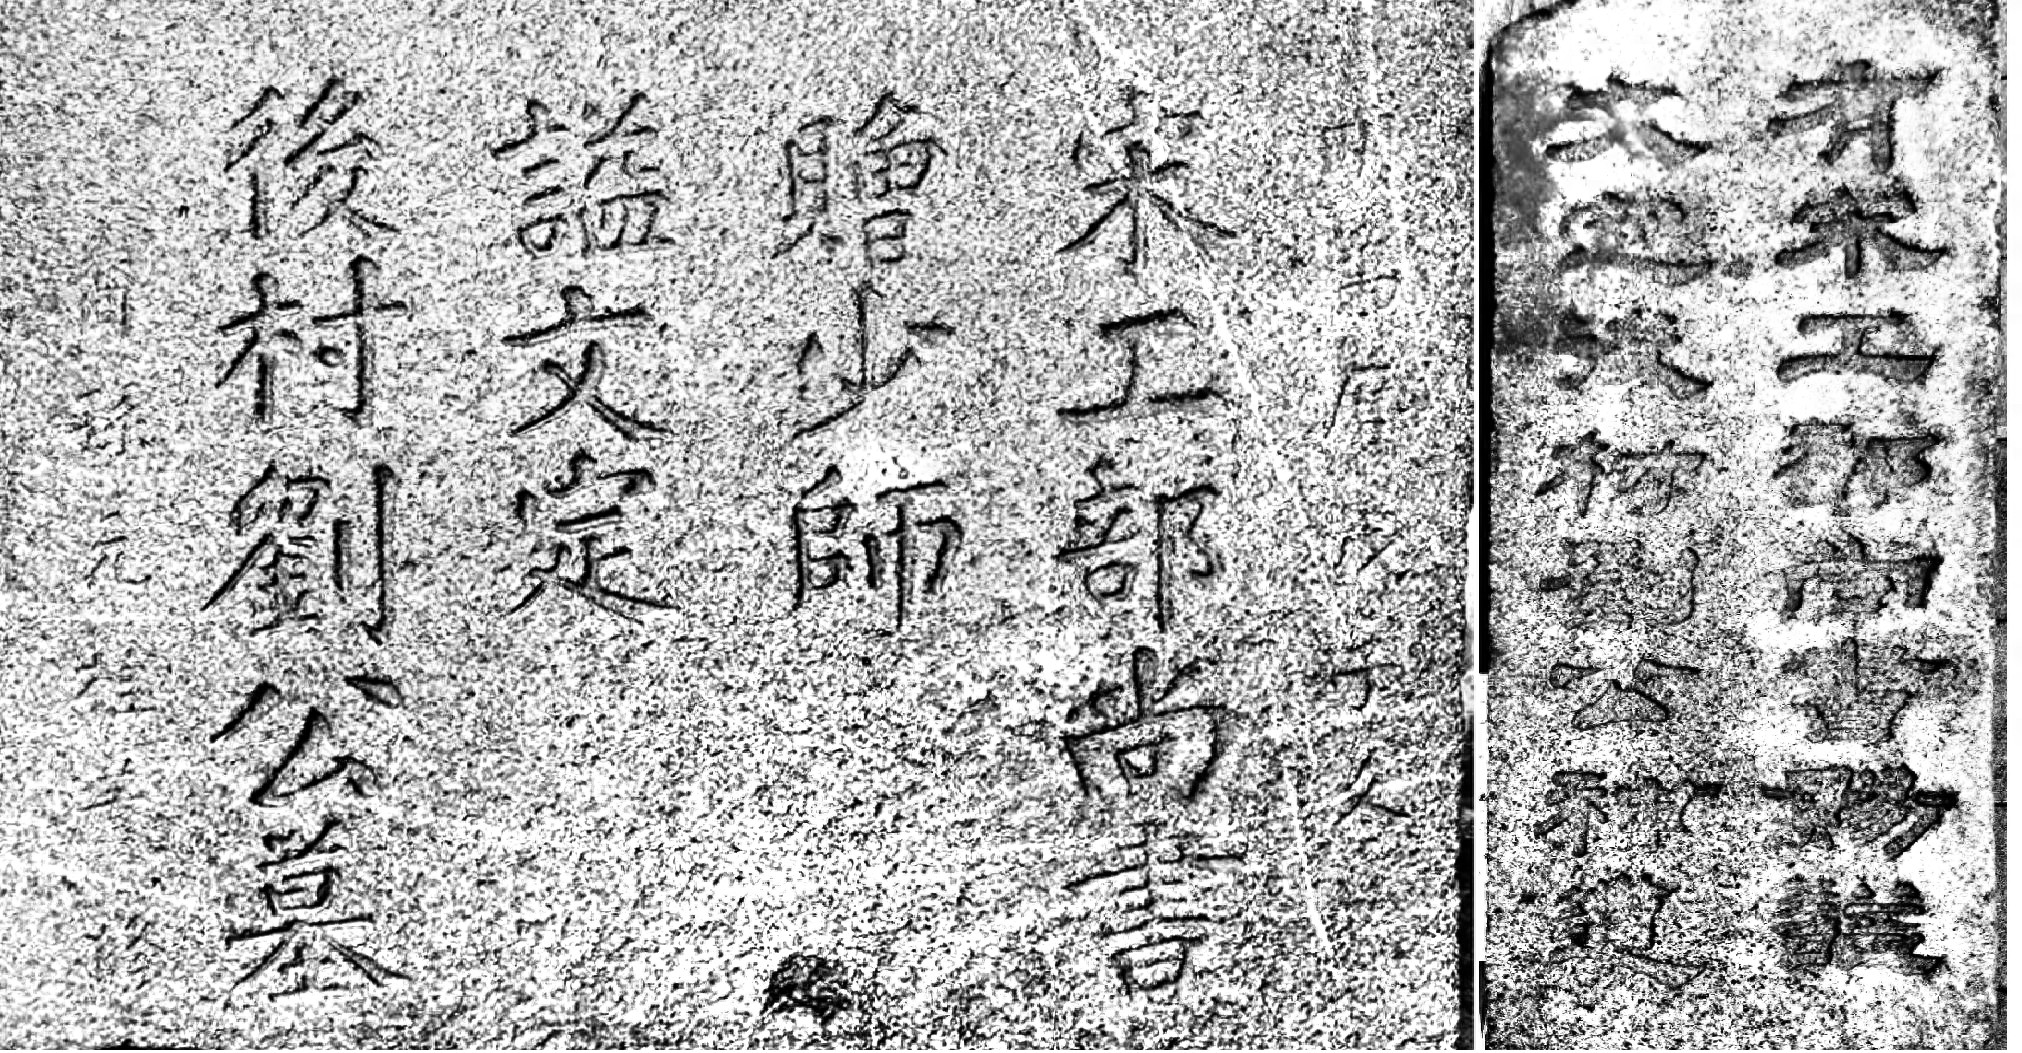 宋工部尚書
贈少師
謚文定
後村劉公墓
有宋工部尚書賜謚
文定後村劉公神道